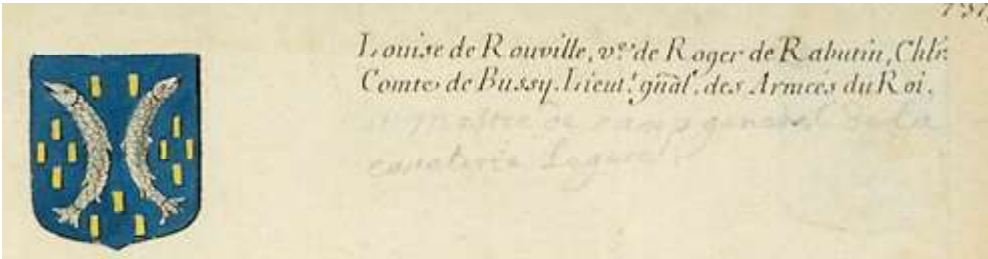 Louise de Rouville, vᵉ. de Roger de Rabutin, Chlr.
Comte de Bussy. Lieut.ᵗ gñal. des Armees du Roi.
mestre de camp general de la
cavalerie Legere